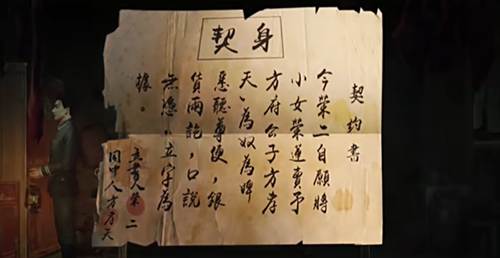 身契
契約書
今榮二自願將
小女榮蓮賣予
方府公子方孝
天,為奴為婢
悉聽尊便,銀
貨兩訖,口說
無憑,立字為
據。
立書人榮二
中人方天